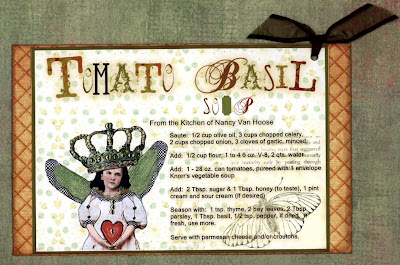 TOMATO BASIL
SOUP
From the Kitchen of Nancy Van Hoose
Saute: 1/2 cup olive oil, 3 cups chopped celery,
2 cups chopped onion, 3 cloves of garlic, minced
Add: 1/2 cup flour, 1 to 4 6 oz. V-8, 2 qts. water
Add: 1 - 28 oz. can tomatoes, pureed with 1 envelope
Knorr's vegetable soup
Add: 2 Tbsp. sugar & 1 Tbsp. honey (to taste), 1 pint
cream and sour cream (if desired)
Season with: 1 tsp. thyme, 2 bay leaves, 2 Tbsp.
parsley, 1 Tbsp. basil, 1/2 tsp. pepper, if dried. If
fresh, use more.
Serve with parmesan cheese and/or croutons.